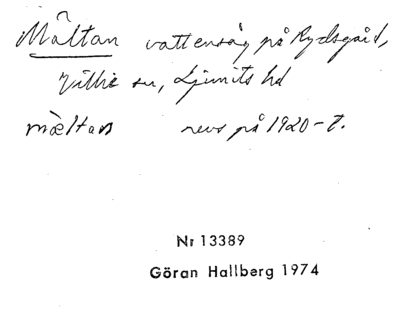 Mältan vattensåg på Rydsgård,
Villie sn, Ljunits hd
mæltan revs på 1920-t.
Nr 13389
Göran Hallberg 1974